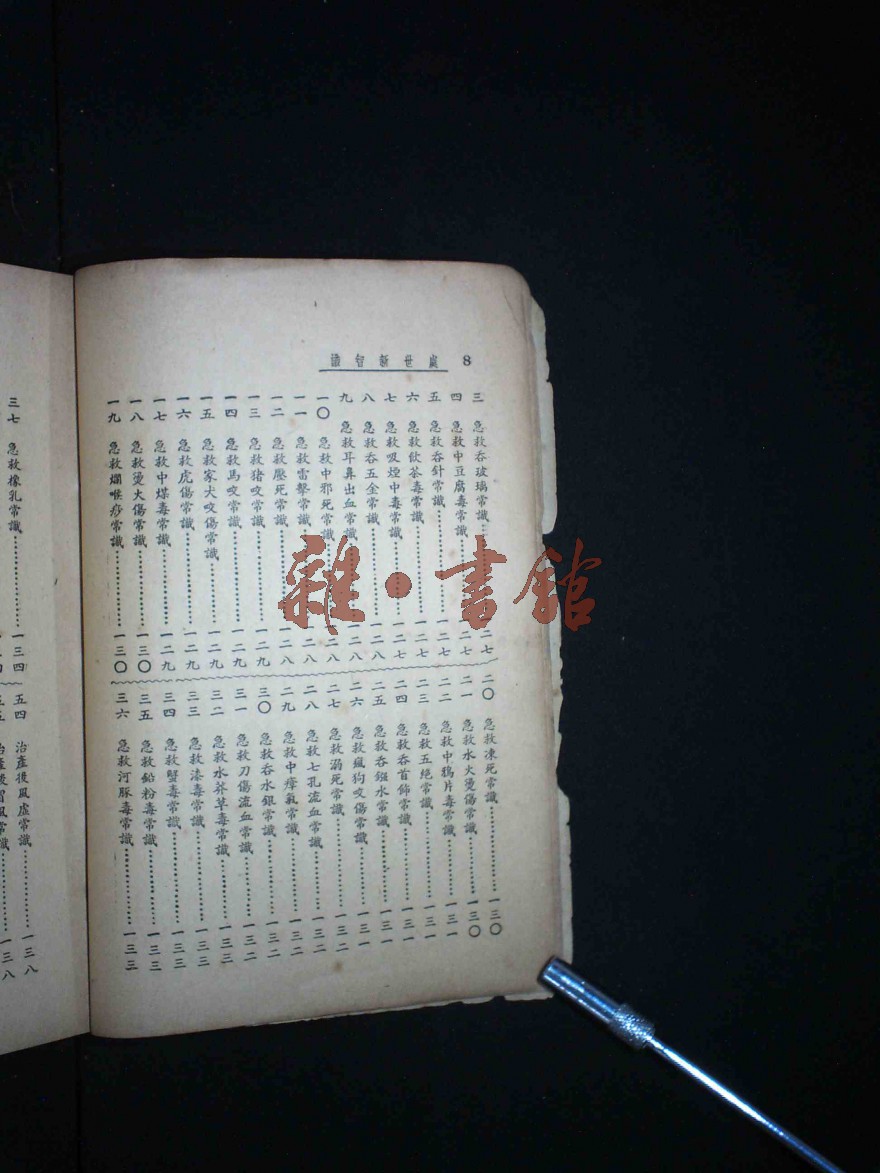 處世新智識 8
三 急救吞玻璃常識 一二七
四 急救中豆腐毒常識 一二七
五 急救吞針常識 一二七
六 急救飲茶毒常識 一二七
七 急救吸煙中毒常識 一二七
八 急救吞五金常識 一二八
九 急救耳鼻出血常識 一二八
一〇 急救中邪死常識 一二八
一一 急救雷擊常識 一二八
一二 急救壓死常識 一二八
一三 急救猪咬常識 一二九
一四 急救馬咬常識 一二九
一五 急救家犬咬傷常識 一二九
一六 急救虎傷常識 一二九
一七 急救中煤毒常識 一二九
一八 急救燙火傷常識 一三〇
一九 急救爛喉痧常識 一三〇
二〇 急救凍死常識 一三〇
二一 急救水火燙傷常識 一三〇
二二 急救中鴉片毒常識 一三一
二三 急救五絕常識 一三一
二四 急救吞首飾常識 一三一
二五 急救吞鏹水常識 一三一
二六 急救瘋狗咬傷常識 一三一
二七 急救溺死常識 一三二
二八 急救七孔流血常識 一三二
二九 急救中瘴氣常識 一三二
三〇 急救吞水銀常識 一三二
三一 急救刀傷流血常識 一三二
三二 急救水莽草毒常識 一三三
三三 急救漆毒常識 一三三
三四 急救蟹毒常識 一三三
三五 急救鉛粉毒常識 一三三
三六 急救河豚毒常識 一三三
三七 急救橡乳常識 一三四
五四 治產後風虛常識 一三八
雜·書館